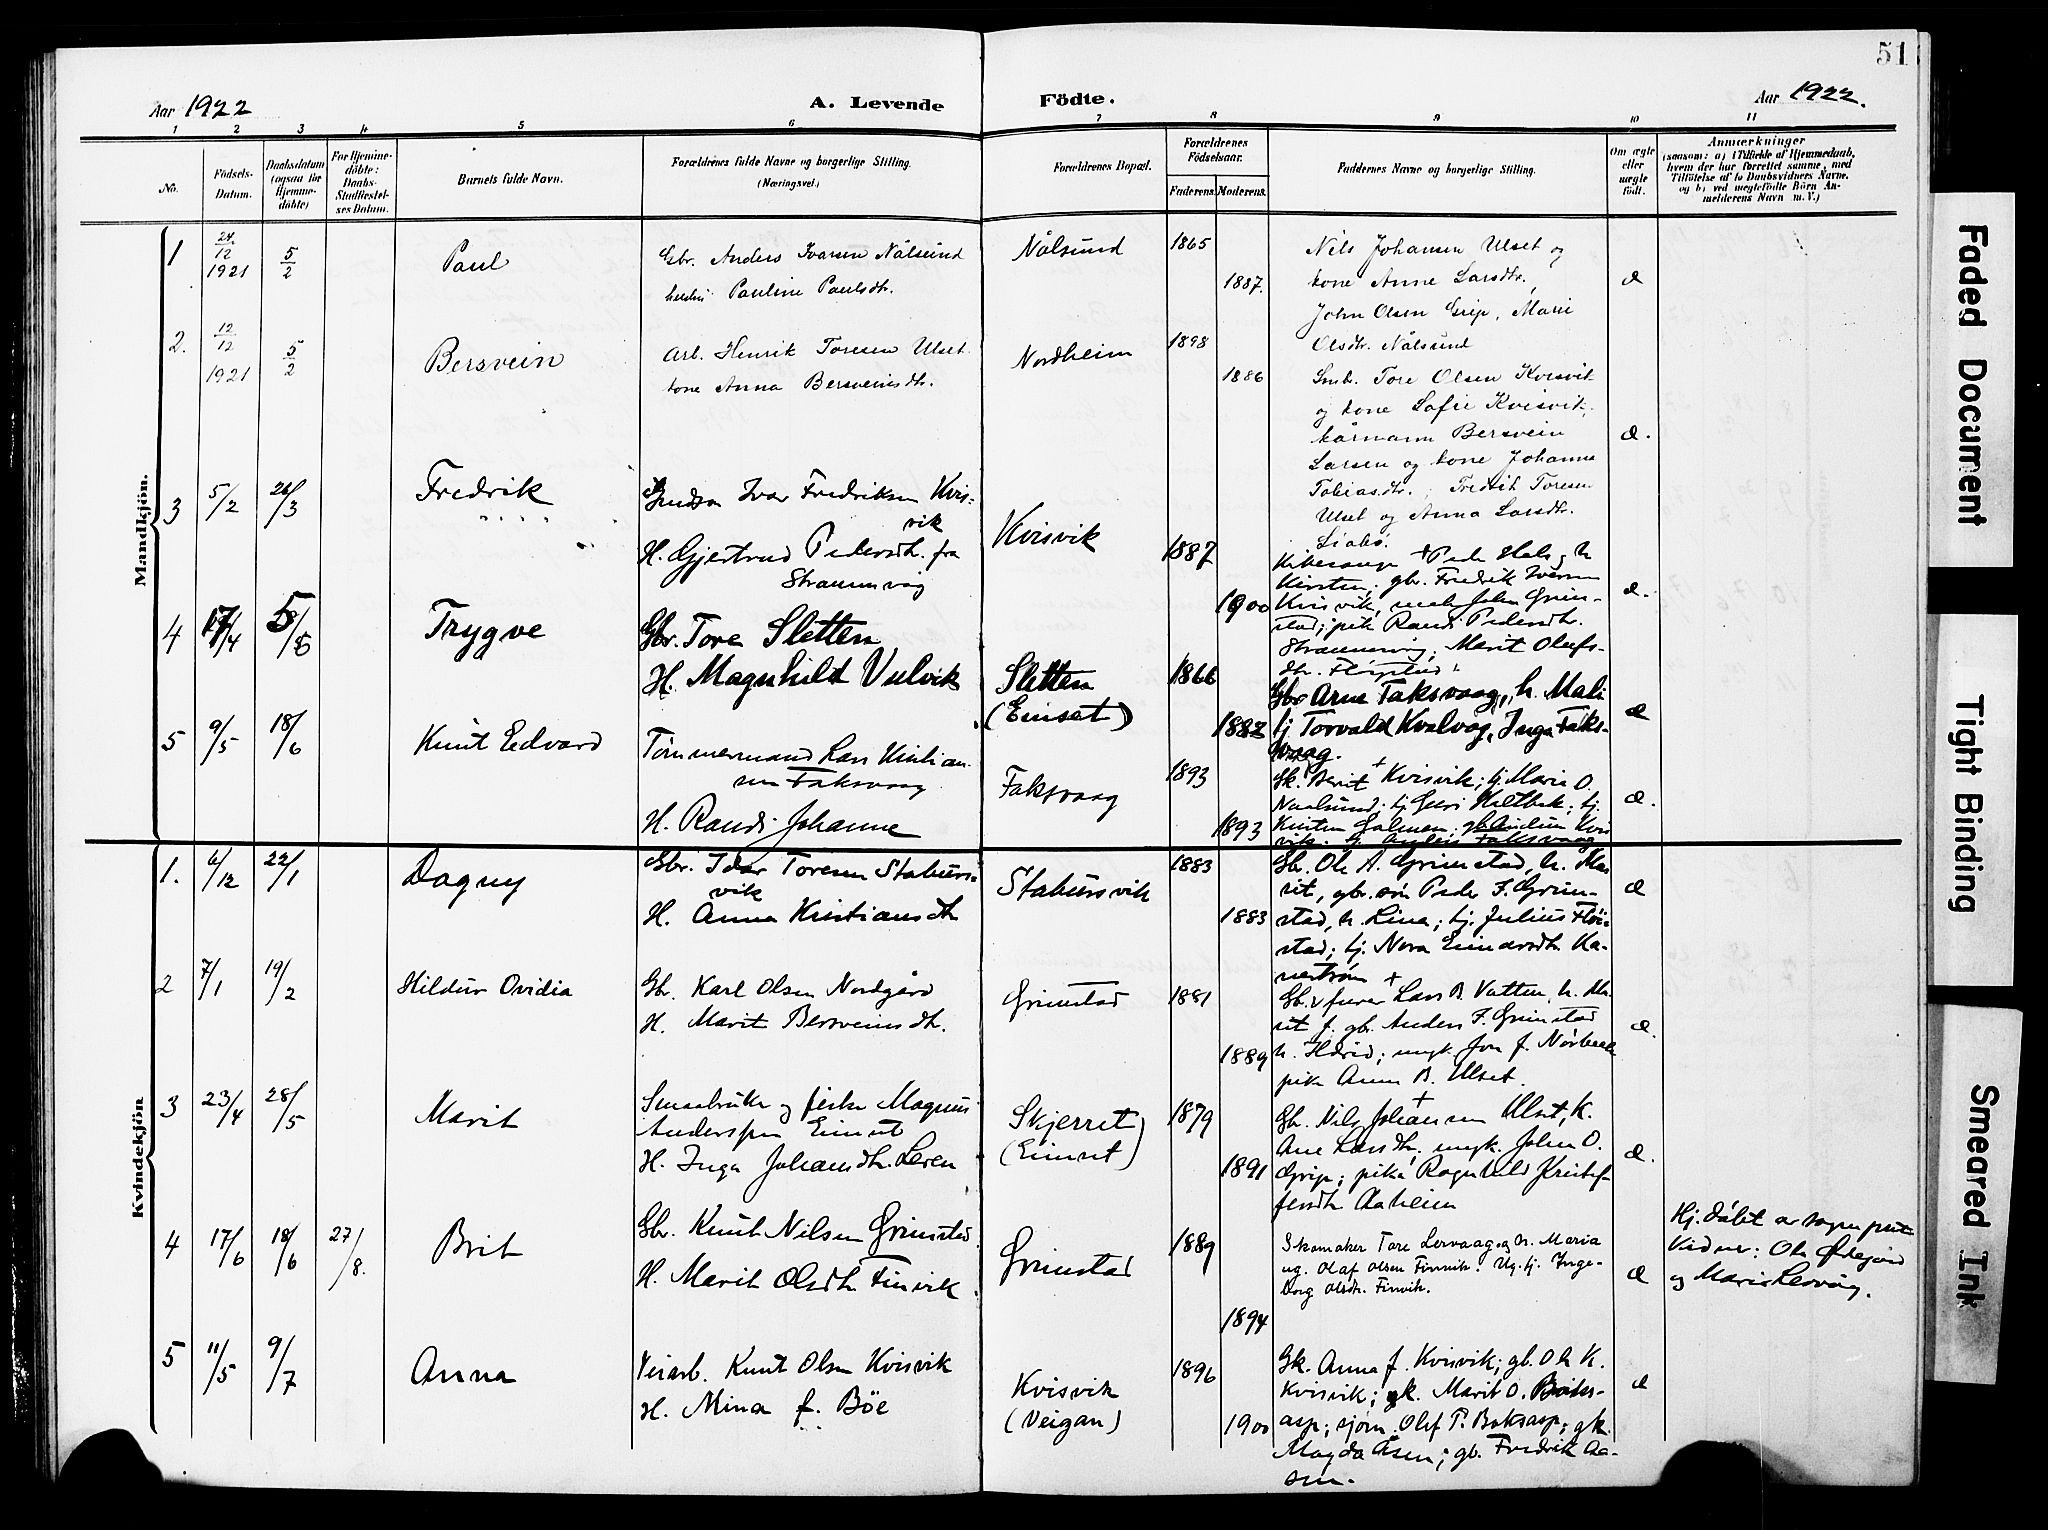 51
Aar 1922
A. Levende
Födte.
Aar 1922.
1 2 3 4 5 6 7 8 9 10 11
No.
Födsels-
Datum.
Daabsdatum
(ogsaa for
Hjemme-
döbte)
For Hjemme-
döbte:
Daabs-
Stadfæstel-
ses Datum.
Barnets fulde Navn.
Forældrenes fulde Navne og borgerlige Stilling.
(Næringsvei.)
Forældrenes Bopæl.
Forældrenes
Födselsaar.
Faderens. Moderens.
Faddernes Navne og borgerlige Stilling.
Om ægte
eller
uægte
födt.
Anmærkninger
(saasom: a) i Tilfælde af Hjemmedaab,
hvem der har forrettet samme, med
Tilföielse af to Daabsvidners Navne,
og b) ved uægtefödte Börn An-
melderens Navn m. V.)
Mandkjön.
1
24/12
1921
5/2
Paul
Gbr. Anders Ivarsen Nålsund
Pauline Paulsdtr.
Nålsund
1865
1887.
Nils Johansen Ulset og
kone Anne Larsdtr.,
John Olsen Grip, Marie
Olsdtr. Nålsund
æ
2.
12/12
1921
5/2
Bersvein
Arb. Henrik Toresen Ulset
kone Anna Bersveinsdtr.
Nordheim
1898
1886
Smb. Tore Olsen Kvisvik
og kone Sofie Kvisvik,
kårmann Bersvein
Larsen og kone Johanna
Tobiasdtr.; Fredrik Toresen
Ulset og Anna Larsdtr.
Liabø.
æ.
3
5/2
26/3
Fredrik
Ivar Fredriksen Kvis-
vik
H. Gjertrud Pedersdtr. fra
Straumsvåg
Kvisvik
1887
1900
Kirkesanger Peder Hals og h.
Kirsten; gbr. Fredrik Iversen
Kvisvik, John Grim-
stad; pik. Randi Pedersdtr.
Straumsvåg; Marit Olufs-
dtr.
æ.
4
17/4
5/6
Trygve
Gbr. Tore Sletten
H. Magnhild Vulvik
Sletten
(Einset)
1866
1882
Gbr Arne Faksvaag, h. Mali
tj Torvald Kvalvag, Inga Faks-
vaag.
æ
5
9/5
18/6
Knut Edvard
Tømmermand Lars Kristian-
sen Faksvaag
H. Randi Johanne
Faksvaag
1893
1893
Gk. Berit Kvisvik; tj. Marie O.
Naalsund; tj. Guri Hiltbak; tj.
Kristen Halmen; gb. Audun Kvis
vik. tj. Anders Faksvaag
æ.
Kvindekjön
1.
6/12
22/1
Dagny
Gbr. Idar Toresen Staburs-
vik
H. Anna Kristiansdtr
Stabursvik
1883
1883
Gb. Ole A. Grimstad, h. Ma-
rit, gbr. søn Peder F. Grim-
stad, h. Lina; tj. Julius Fløi-
stad; tj. Nora Einarsdtr Ka-
nestrøm
æ
2
7/1
19/2
Hildur Ovidia
Gb. Karl Olsen Nordgård
H. Marit Bersveinsdtr.
Grimstad
1881
1889
Gb. v furer Lars B. Vatten, h. Ma-
rit f. gb. Anders F. Grimstad
h. Hærid; ungk. Jon f. Nørbech
pike Anne B. Ulset.
æ.
3
23/4
28/5
Marit
Smaabruker og fisker Magnus
Anderssen Einset
H. Inga Johansdtr. Leren
Skjerret
(Einset)
1879
1891
Gb. Nils Johansen Ulset, K.
Ane Larsdtr, ungk. John O.
Grip; pike Ragnhild Kristof-
fersdtr Aaheim
æ.
4
17/6
18/6
27/8.
Brit
Gbr. Knut Nilsen Grimstad
H. Marit Olsdtr Finvik.
Grimstad
1889
1894
Skomaker Tore Lervaag og h. Maria
ug. Olaf Olsen Finvik. Ug. tj. Inge-
borg Olsdtr. Finvik.
æ
Hj. døbt av sogneprest
Vidner: Ole Ødegård
og Marie Lervåg.
5
11/5
9/7
Anna
Veiarb. Knut Olsen Kvisvik
H. Mina f. Bøe
Kvisvik
(Veigan)
1896
1900
Gk. Anna f. Kvisvik; gb. Ole K.
Kvisvik; gk. Marit O. Boks-
asp; sjøm. Olaf P. Boksasp; gk.
Magda Åsen; gb. Fredrik Aa-
sen.
æ
Faded Document
Tight Binding
Smeared Ink